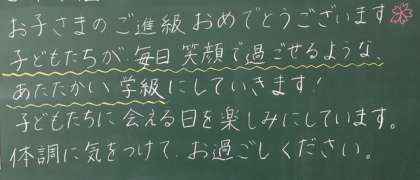 お子さまのご進級おめでとうございます
子どもたちが毎日笑顔で過ごせるような、
あたたかい学級にしていきます!
子どもたちに会える日を楽しみにしています。
体調に気をつけて、お過ごしください。